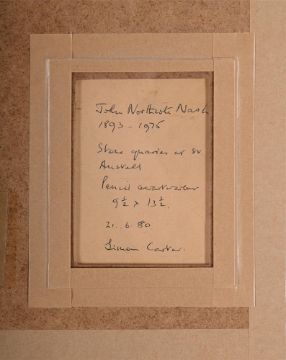 John Northcote Nash
1893 - 1976
Stone quarries at St
Austell
Pencil watercolour
9½ x 13½.
21. 6. 80
Simon Carter.